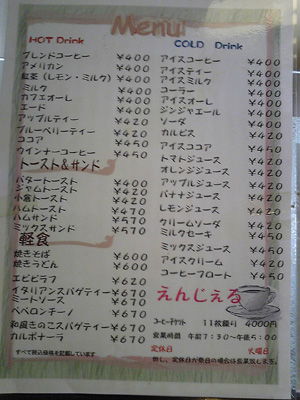 Menu
HOT Drink
ブレンドコーヒー ¥400
アメリカン ¥400
紅茶(レモン・ミルク) ¥400
ミルク ¥400
カフェオーレ ¥400
エード ¥400
アップルティー ¥420
ブルーベリーティー ¥420
ココア ¥450
ウインナーコーヒー ¥450
トースト&サンド
バタートースト ¥400
ジャムトースト ¥420
小倉トースト ¥420
ハムトースト ¥470
ハムサンド ¥570
ミックスサンド ¥570
軽食
焼きそば ¥600
焼きうどん ¥600
エビピラフ ¥620
イタリアンスパゲティー ¥670
ミートソース ¥670
ペペロンチーノ ¥670
和風きのこスパゲティー ¥670
カルボナーラ ¥670
すべて税込価格を記載しています
COLD Drink
アイスコーヒー ¥400
アイスティー ¥400
アイスミルク ¥400
コーラー ¥400
アイスオーレ ¥400
ジンジャエール ¥400
ソーダ ¥400
カルピス ¥420
アイスココア ¥450
トマトジュース ¥420
オレンジジュース ¥420
アップルジュース ¥420
バナナジュース ¥420
レモンジュース ¥420
クリームソーダ ¥450
ミルクセーキ ¥450
ミックスジュース ¥450
アイスクリーム ¥420
コーヒーフロート ¥450
えんじぇる
コーヒーチケット 11枚綴り 4000円
営業時間 午前7:30~午後5:00
定休日 火曜日
但し、定休日が祭日の場合は営業致します。